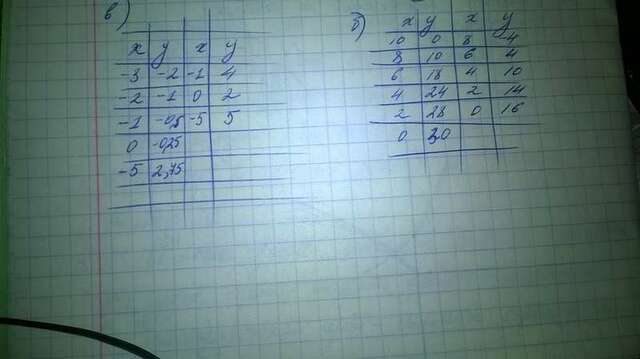 в)
x y x y
-3 -2 -1 4
-2 -1 0 2
-1 -0,5 -5 5
0 -0,25
-5 2,75
б)
x y x y
10 0 8 -4
8 10 6 4
6 18 4 10
4 24 2 14
2 28 0 16
0 30